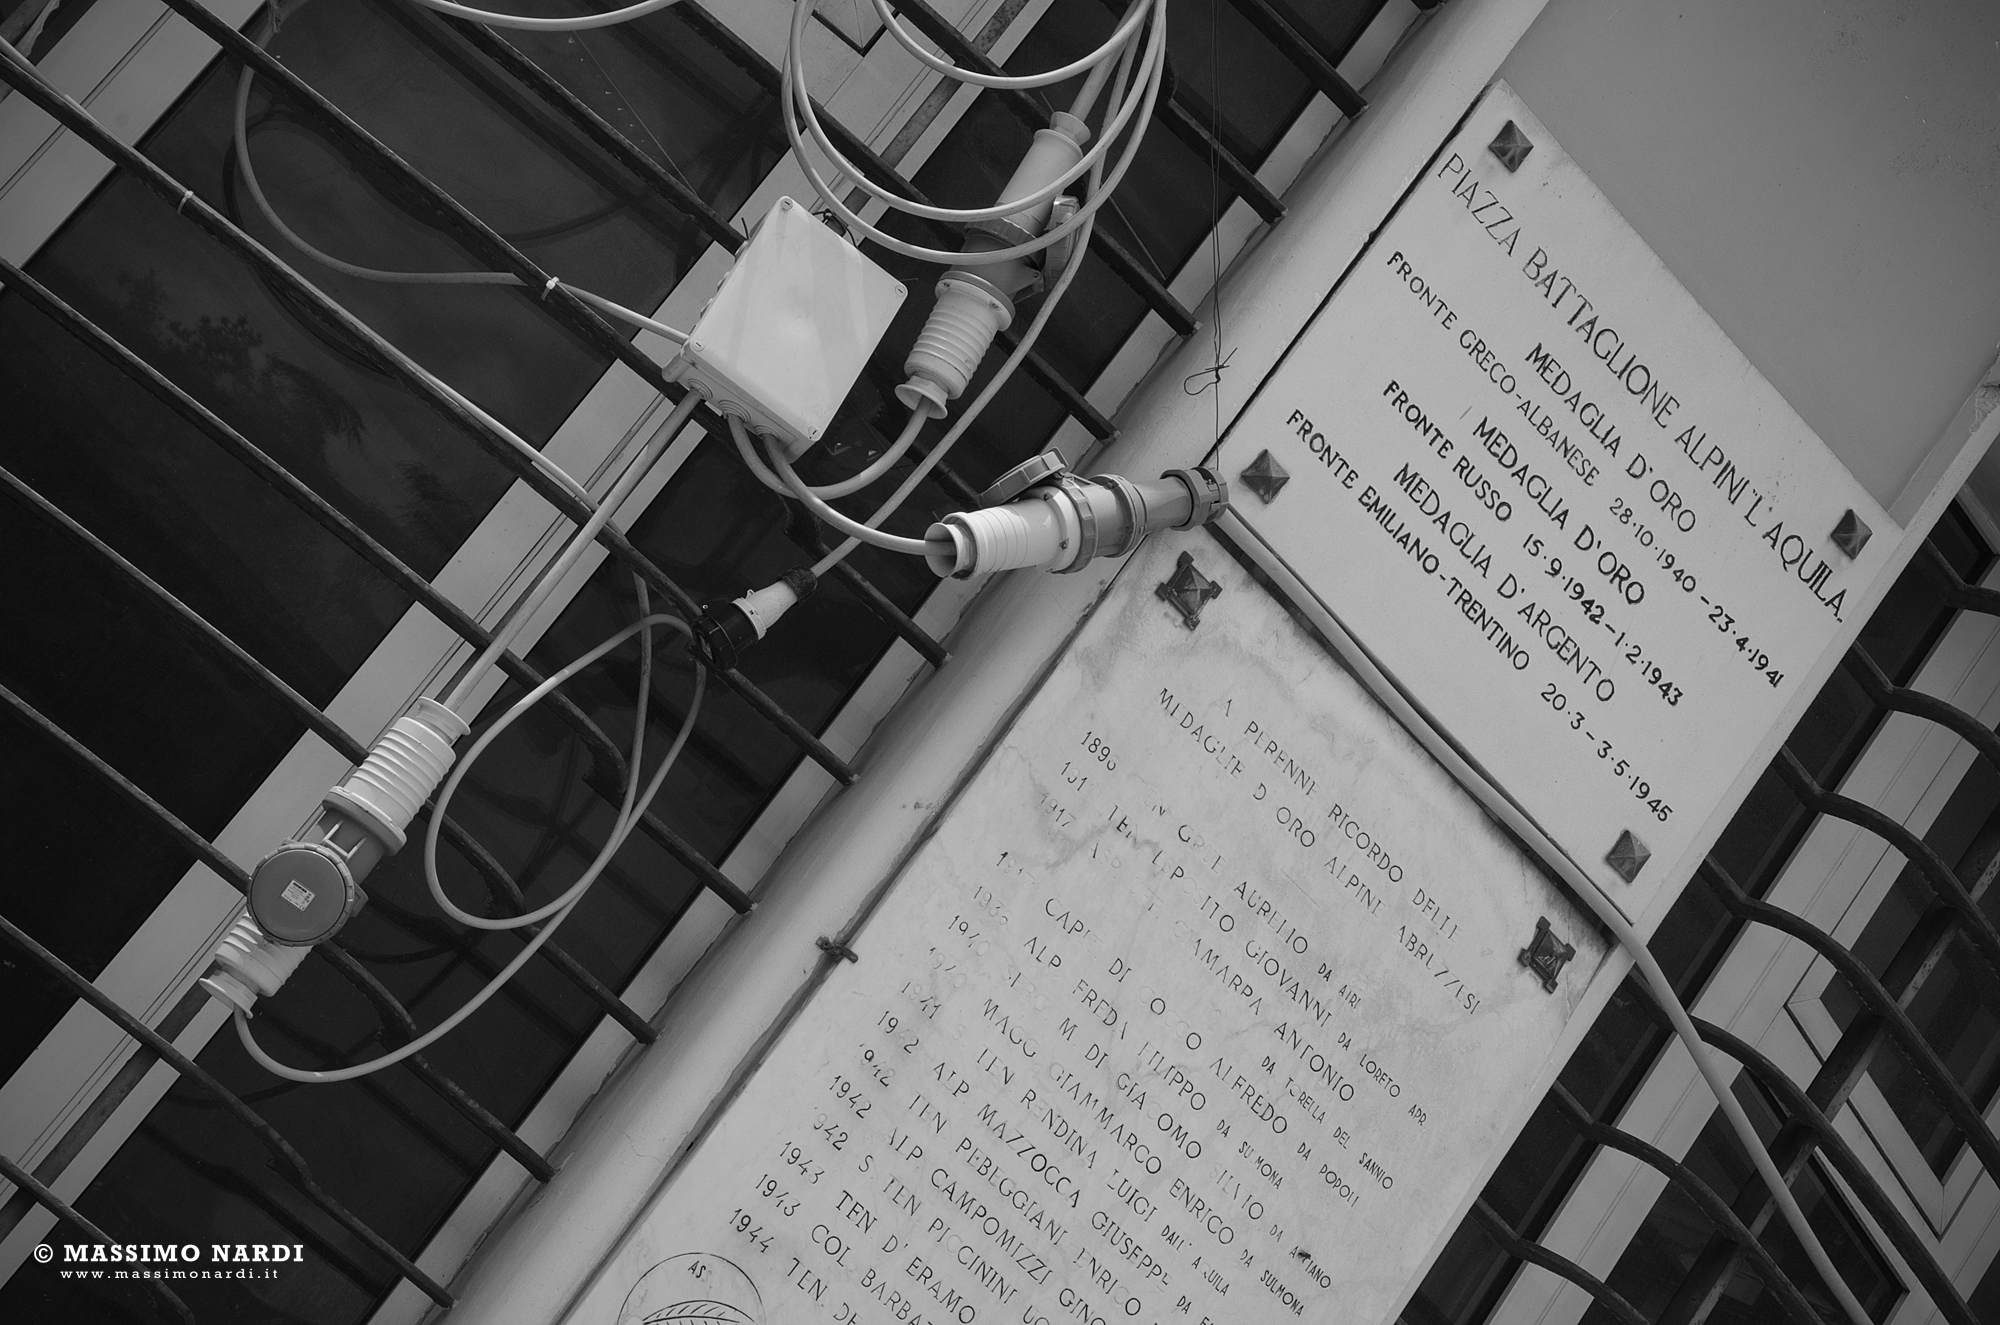 PIAZZA BATTAGLIONE ALPINI "L'AQUILA"
MEDAGLIA D'ORO
FRONTE GRECO-ALBANESE 28·10·1940 – 23·4·1941
MEDAGLIA D'ORO
FRONTE RUSSO 15·9·1942 – 1·2·1943
MEDAGLIA D'ARGENTO
FRONTE EMILIANO-TRENTINO 20·3 – 3·5·1945
A PERENNE RICORDO DELLE
MEDAGLIE D'ORO ALPINE ABRUZZESI
AURELIO DA ATRI
TEN ESPOSITO GIOVANNI DA LORETO APR
1917 ANTONIO DA TORELLA DEL SANNIO
CAP DI COCCO ALFREDO DA POPOLI
ALP FREDA FILIPPO DA SULMONA
M DI GIACOMO SILVIO DA
MAGG GIAMMARCO ENRICO DA SULMONA
1941 S TEN RENDINA LUIGI DALL'AQUILA
1942 ALP MAZZOCCA GIUSEPPE DA
1942 TEN ENRICO
1942 ALP CAMPOMIZZI GINO
942 S. TEN PICCININI
1943 TEN D'ERAMO
1943 COL BARBA
1944 TEN. DE
AS
© MASSIMO NARDI
www.massimonardi.it